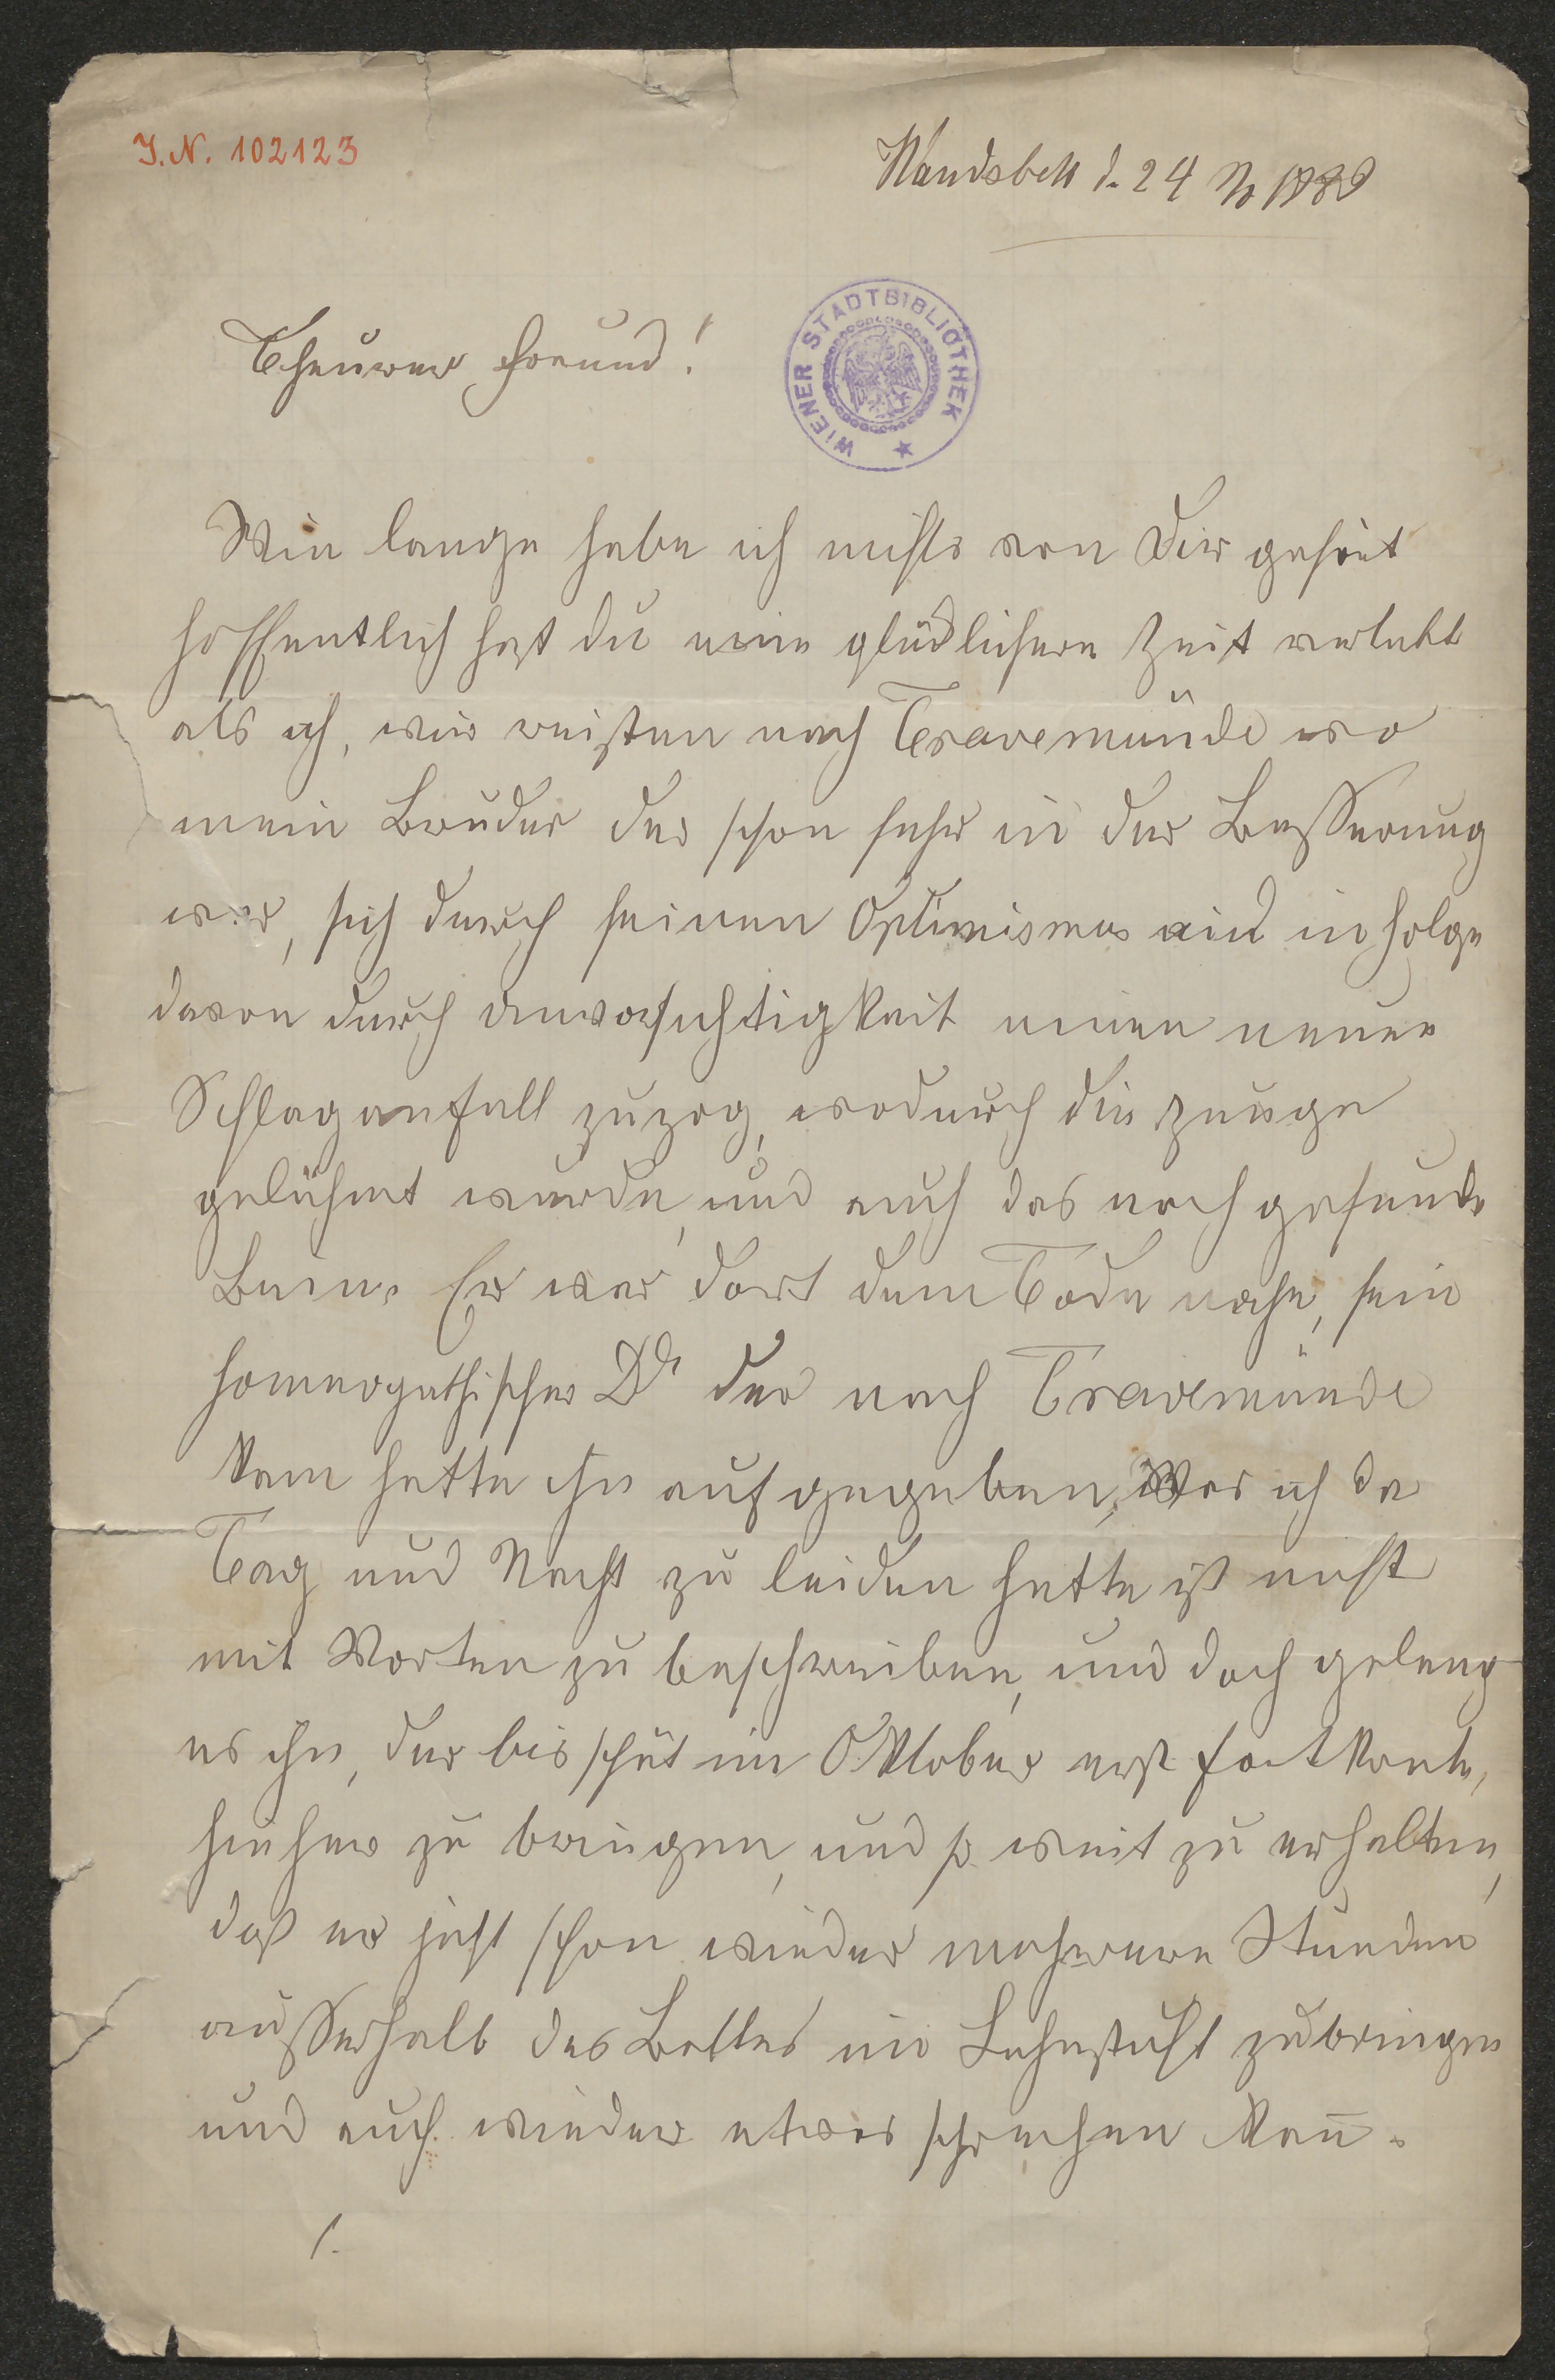 J.N. 102123
Wandsbek d. 24 N 1889
Theurer Freund!
WIENER STADTBIBLIOTHEK
Wie lange habe ich nichts von Dir gehört
hoffentlich hast du eine glücklichere Zeit verlebt
als ich, wir reisten nach Travemünde wo
mein Bruder der schon sehr in der Besserung
war, sich durch seinen Optimismus und in folge
davon durch Unvorsichtigkeit einen neuen
Schlaganfall zuzog, wodurch die Zunge
gelähmt wurde, und auch das noch gesunde
Bein. Er war dort dem Tode nahe, sein
homeopathischer Dr der nach Travemünde
kam hatte ihn aufgegeben, Was ich da
Tag und Nacht zu leiden hatte ist nicht
mit Worten zu beschreiben, und doch gelang
es ihn, der bis spät im Oktober erst fort konte,
hieher zu bringen, und so weit zu erhalten,
daß er jetzt schon wieder mehrere Stunden
ausserhalb des Bettes im Lehnstuhl zubringen
und auch wieder etwas sprechen kan̄.
/.